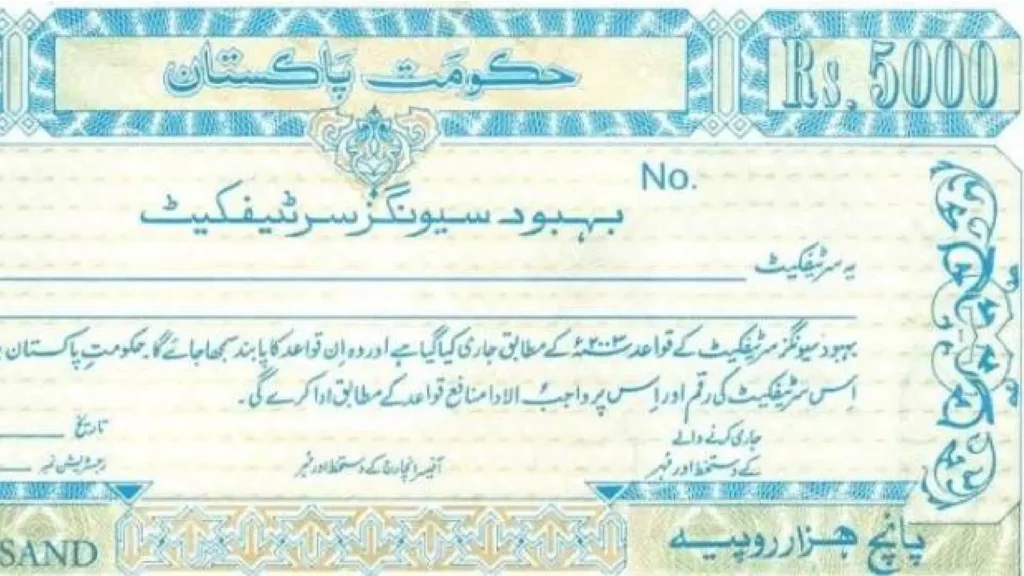 حکومت پاکستان
Rs. 5000
No.
بہبود سیونگز سرٹیفکیٹ
یہ سرٹیفکیٹ
بہبود سیونگز سرٹیفکیٹ کے قواعد ۲۰۰۳ء کے مطابق جاری کیا گیا ہے اور وہ اِن قواعد کا پابند سمجھا جائے گا۔ حکومتِ پاکستان
اِس سرٹیفکیٹ کی رقم اور اِس پر واجب الادا منافع قواعد کے مطابق ادا کرے گی۔
جاری کرنے والے
کے دستخط اور مُہر
آفیسر انچارج کے دستخط اور مُہر
تاریخ
رجسٹریشن نمبر
پانچ ھزار روپیے
SAND